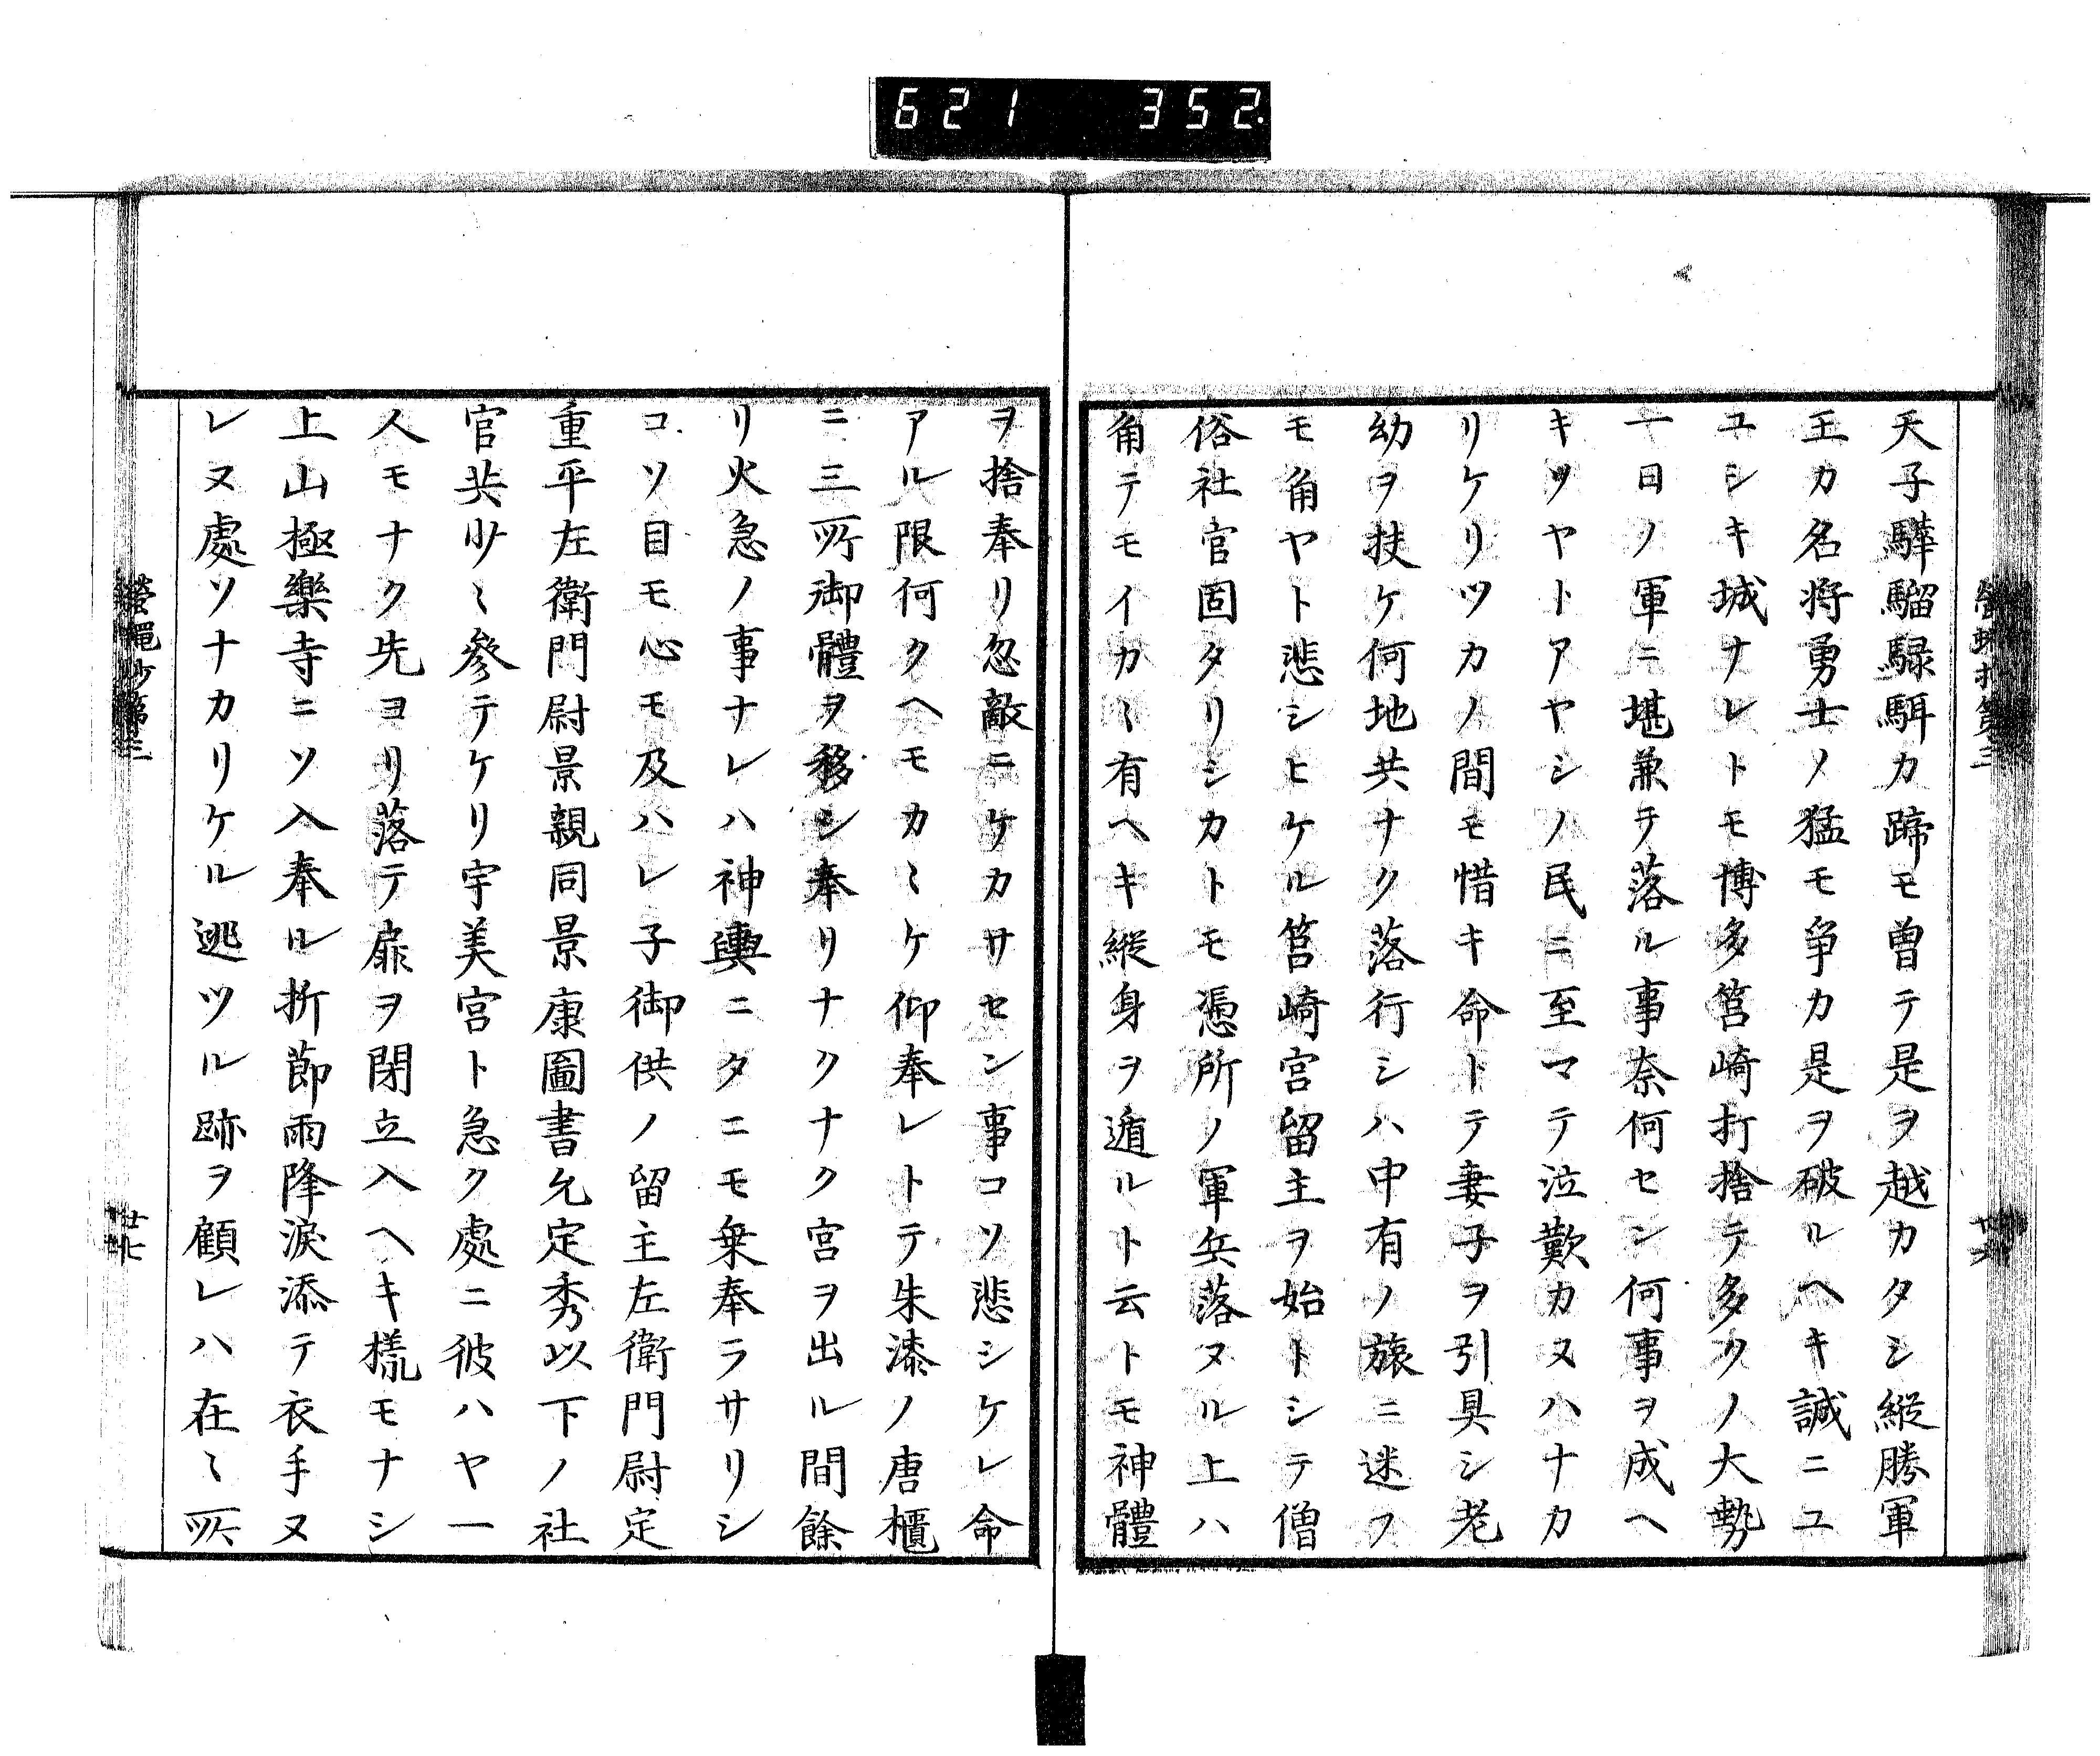 621 352
天子驊騮騄駬カ蹄モ曽テ是ヲ越カタシ縱勝軍
王カ名将勇士ノ猛モ争カ是ヲ破ルヘキ誠ニユ
ユシキ城ナレトモ博多筥崎打捨テ多クノ大勢
一日ノ軍ニ堪兼テ落ル事奈何セン何事ヲ成ヘ
キツヤトアヤシノ民ニ至マテ泣歎カヌハナカ
リケリツカノ間モ惜キ命トテ妻子ヲ引具シ老
幼ヲ扶ケ何地共ナク落行シハ中有ノ旅ニ迷フ
モ角ヤト悲シヒケル筥崎宮留主ヲ始トシテ僧
俗社官固タリシカトモ憑所ノ軍兵落ヌル上ハ
角テモイカヽ有ヘキ縱身ヲ遁ルト云トモ神體
ヲ捨奉リ忽敵ニケカサセン事コソ悲シケレ命
アル限何クヘモカヽケ仰奉レトテ朱漆ノ唐櫃
ニ三所御體ヲ移シ奉リナクナク宮ヲ出ル間餘
リ火急ノ事ナレハ神輿ニタニモ乗奉ラサリシ
コソ目モ心モ及ハレ子御供ノ留主左衛門尉定
重平左衛門尉景親同景康圖書允定秀以下ノ社
官共少〻參テケリ宇美宮ト急ク處ニ彼ハヤ一
人モナク先ヨリ落テ扉ヲ閉立入ヘキ様モナシ
上山極樂寺ニソ入奉ル折節雨降淚添テ衣手ヌ
レヌ處ソナカリケル逃ツル跡ヲ顧レハ在〻所
螢蠅抄第三
廿七